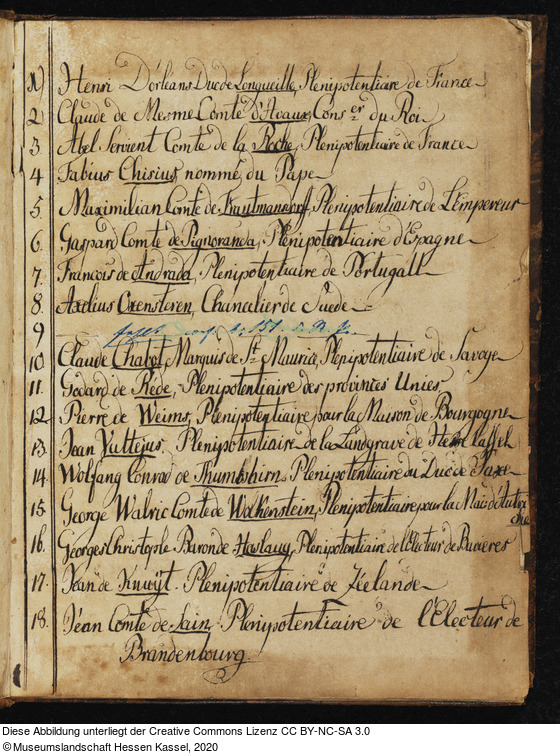 1) Henri D'orleans Duc de Longueille, Plenipotentiaire de France
2 Claude de Mesme Comte D'Avaux, Cons.er du Roi
3 Abel Servient Comte de la Roche, Plenipotentiaire de France
4 Fabius Chisius nommé du Pape
5. Maximilian Comte de Trautmansdorf, Plenipotentiaire de L'Empereur
6. Gaspard Comte de Pignoranda, Plenipotentiaire d'Espagne
7. Francois de Andrada, Plenipotentiaire de Portugall
8. Axelius Oxensteren, Chancelier de Suede
9
10. Claude Chabot, Marquis de St Maurice, Plenipotentiaire de Savoye
11. Godard de Rede, Plenipotentiaire des provinces Unies
12 Pierre de Weims, Plenipotentiaire pour la Maison de Bourgogne
13. Jean Vultejus. Plenipotentiaire de la Landgrave de Hesse Cassel
14 Wolfang Conrad de Thumbshirn, Plenipotentiaire du Duc de Saxe
15. George Walric Comte de Wolkenstein, Plenipotentiaire pour la Mais: d'Autri
che
16. Georges Christople Baron de Haslang, Plenipotentiaire de l'Electeur de Bavieres
17. Jean de Knuÿt. Plenipotentiaire de Zéelande
18. Jéan Comte de Sain Plenipotentiaire de l'Electeur de
Brandenbourg.
Diese Abbildung unterliegt der Creative Commons Lizenz CC BY-NC-SA 3.0
©Museumslandschaft Hessen Kassel, 2020